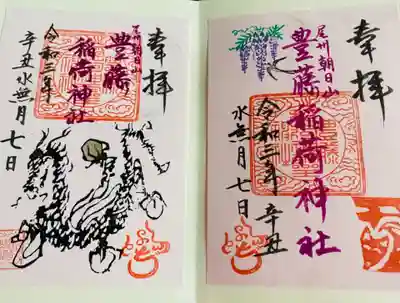 奉拝
尾州朝日山
豊藤
稲荷神社
令和三年
辛丑水無月
七日
奉拝
尾州朝日山
豊藤稲荷神社
令和三年辛丑
水無月七日